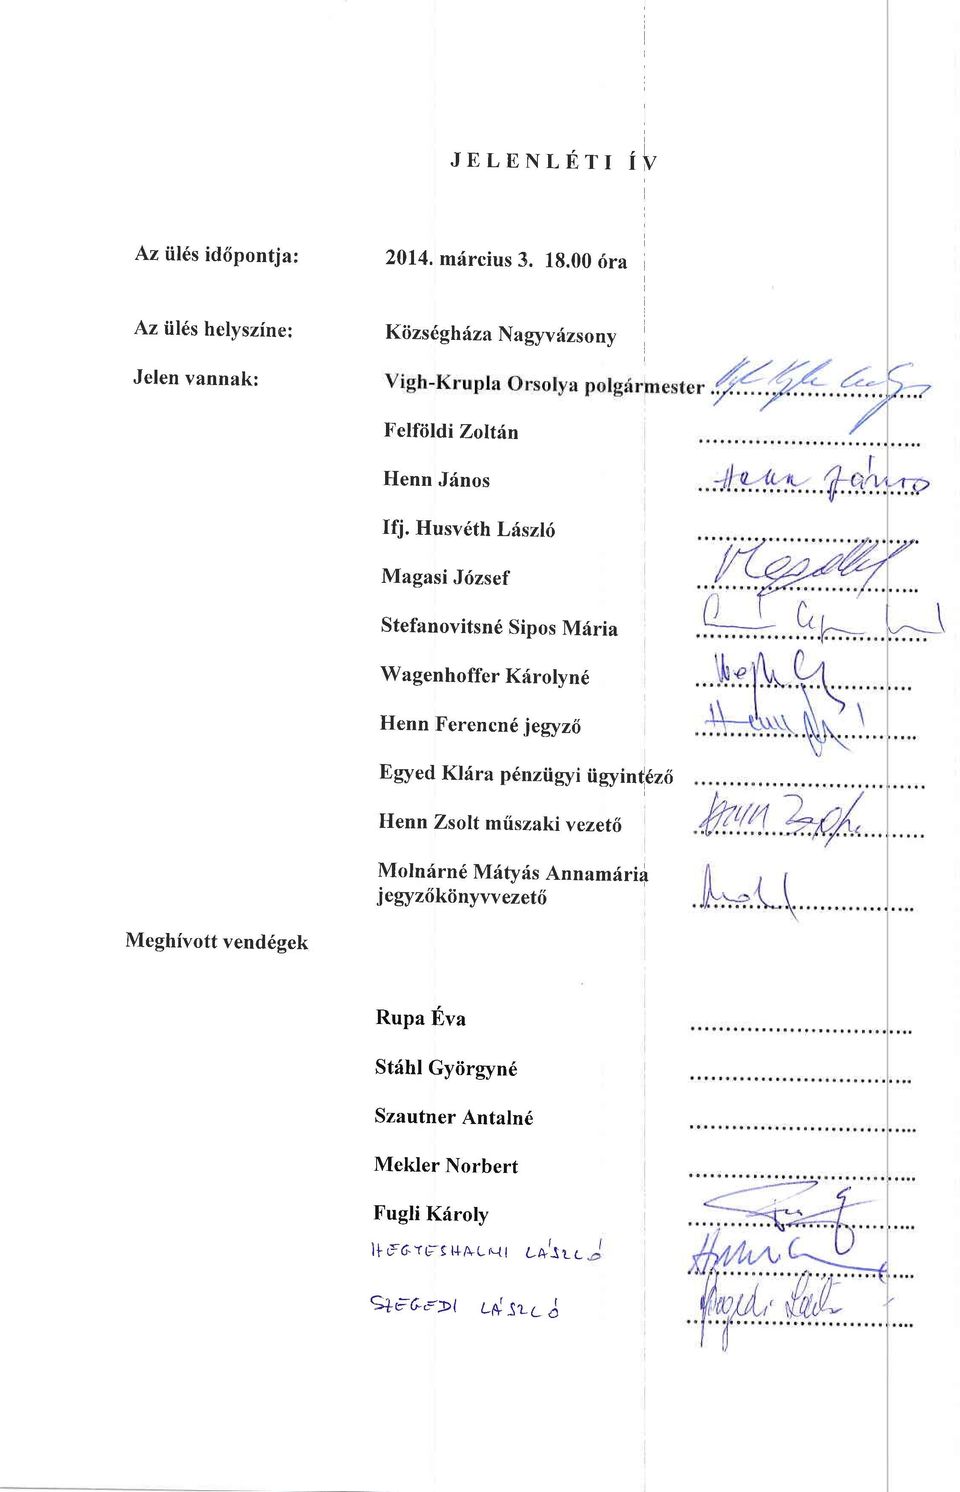 JELENLÉTI ÍV
Az ülés időpontja: 2014. március 3. 18.00 óra
Az ülés helyszíne: Községháza Nagyvázsony
Jelen vannak: Vigh-Krupla Orsolya polgármester
Felföldi Zoltán
Henn János Henn János
Ifj. Husvéth László
Magasi József
Stefanovitsné Sipos Mária
Wagenhoffer Károlyné
Henn Ferencné jegyző
Egyed Klára pénzügyi ügyintéző
Henn Zsolt műszaki vezető Henn Zsolt
Molnárné Mátyás Annamária
jegyzőkönyvvezető
Meghívott vendégek
Rupa Éva
Stáhl Györgyné
Szautner Antalné
Mekler Norbert
Fugli Károly
HEGYESHALMI LÁSZLÓ
SZEGEDI LÁSZLÓ Szegedi László